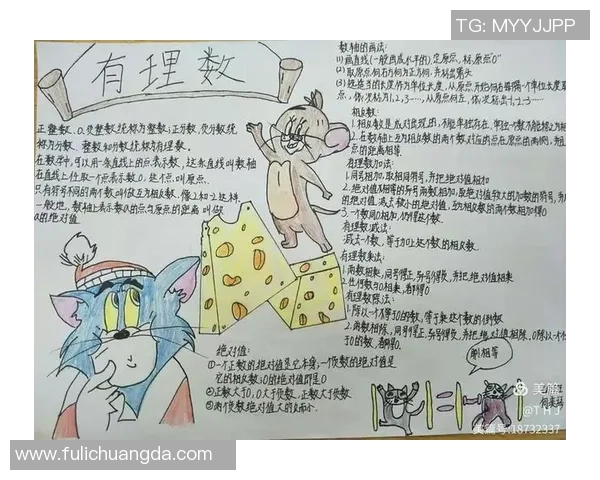 TG: MYYJJPP
有理数
正整数、0、负整数统称为整数；正分数、负分数统
称为分数。整数和分数统称有理数。
在数学中，可以用一条直线上的点表示数，这条直线叫数轴
在直线上任取一个点表示数0，这个点叫原点。
只有符号不同的两个数叫做互为相反数。像2和-2这样。
一般地，数轴上表示数a的点与原点的距离叫做
a的绝对值
数轴的画法：
(1)画直线(一般画成水平的)，定原点，标原点"0"
(2)取原点向右方向为正方向，并标出箭头
(3)选适当的长度作为单位长度，从原点开始向右每隔一个单位长度取
点，依次标为1,2,3……，从原点向左，依次标出-1,-2,-3……
相反数：
1.相反数是成对出现的，不能单独存在，单独一个数不能称之为相
2.在数轴上互为相反数的两个数对应的点在原点的两侧，并且
点的距离相等。
有理数加法：
1.同号相加，取相同符号，并把绝对值相加
2.绝对值不相等的异号两数相加，取绝对值较大的加数的符号，并用
的绝对值，减去较小的绝对值，互为相反数的两个数相加得0
3.一个数同0相加，仍得这个数。
有理数减法：
减去个数，等于加上这个数的相反数。
有理数乘法：
1.两数相乘，同号得正，异号得负，并把绝对值相乘
2.任何数与0相乘，都得0
有理数除法：
1.除以一个不等于0的数，等于乘这个数的倒数
2.两数相除，同号得正，异号得负，并把绝对值相除。0除以一个
于0的数，都得0。
绝对值：
①一个正数的绝对值是它本身；一个负数的绝对值是
它的相反数；0的绝对值即是0
②正数大于0，0大于负数，正数大于负数
③两个负数绝对值大的反而小。
刷相等
美篇
@THJ
美篇号:18732337
www.fulichuangda.com